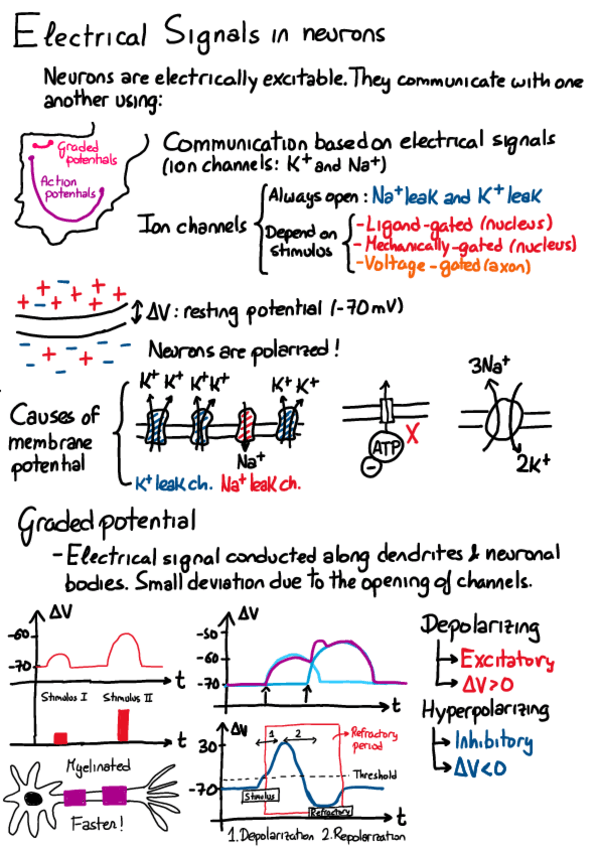 Electrical Signals in neurons
Neurons are electrically excitable. They communicate with one
another using:
Graded
potentials
Action
potentials
Communication based on electrical signals
(ion channels: K⁺ and Na⁺)
Ion channels
Always open: Na⁺ leak and K⁺ leak
Depend on
stimulus
-Ligand-gated (nucleus)
-Mechanically-gated (nucleus)
-Voltage-gated (axon)
+ - + - + + +
+ - + - + +
ΔV: resting potential (-70mV)
- - + - - -
- + - + -
Neurons are polarized!
Causes of
membrane
potential
K⁺ K⁺ K⁺ K⁺ K⁺ K⁺
Na⁺
K⁺ leak ch. Na⁺ leak ch.
ATP
-
X
3Na⁺
2K⁺
Graded potential
-Electrical signal conducted along dendrites & neuronal
bodies. Small deviation due to the opening of channels.
ΔV
-60
-70
t
Stimulus I Stimulus II
t
ΔV
-50
-60
-70
t
Depolarizing
Excitatory
ΔV>0
Hyperpolarizing
Inhibitory
ΔV<0
Myelinated
Faster!
ΔV
30
-70
1 2
Refractory
period
Threshold
Stimulus
Refractory
t
1. Depolarization 2. Repolarization